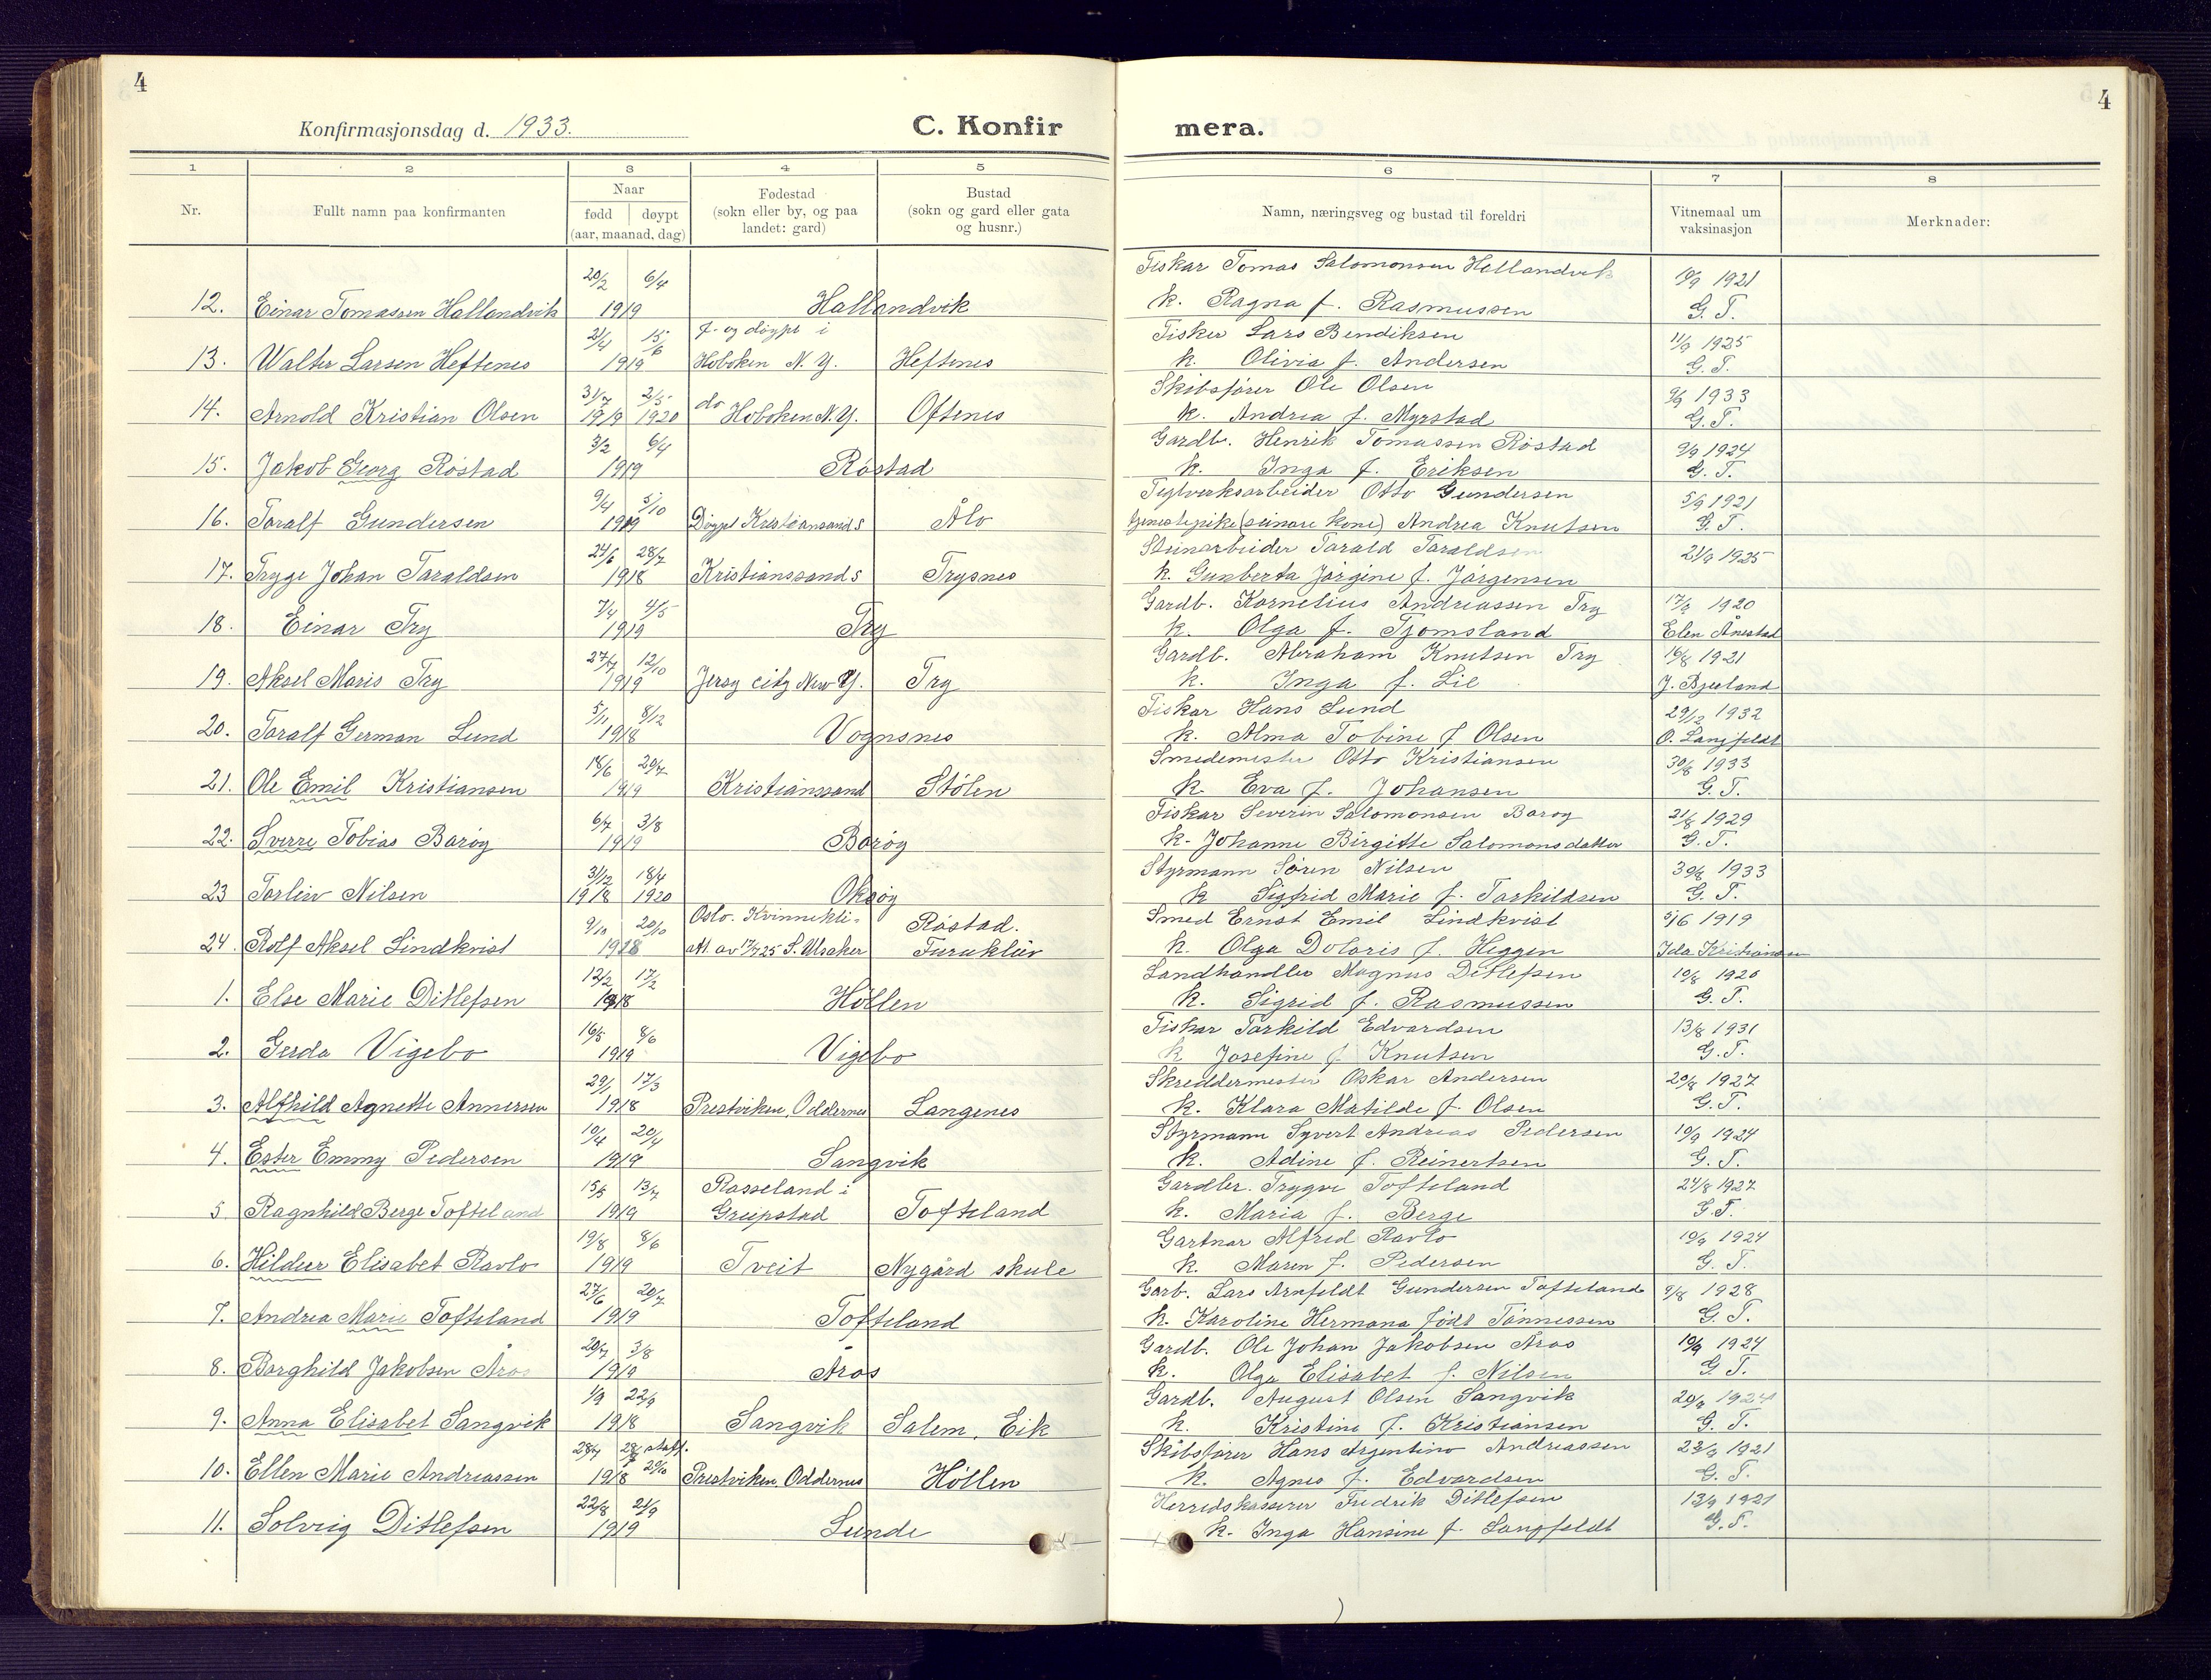 4
4
Konfirmasjonsdag d. 1933.
C. Konfir
mera.
1 2 3 4 5 6 7 8
Nr.
Fullt namn paa konfirmanten
Naar
fødd døypt
(aar, maanad, dag)
Fødestad
(sokn eller by, og paa
landet: gard)
Bustad
(sokn og gard eller gata
og husnr.)
Namn, næringsveg og bustad til foreldri
Vitnemaal um
vaksinasjon
Merknader:
20/2 6/4 Fiskar Tomas Salomonsen Hallandvik 10/9 1921
12. Einar Tomassen Hallandvik 1919 Hallandvik k. Ragna f. Rasmussen G. T.
21/4 15/6 f. og døypt i Fisker Lars Bendiksen 11/9 1925
13. Walter Larsen Heftenes 1919 Hoboken N. Y. Heftenes k. Olivia f. Andersen G. T.
31/7 2/5 do Skibsfører Ole Olsen 9/9 1933
14. Arnold Kristian Olsen 1919 1920 Hoboken N.Y. Oftenes k. Andrea f. Myrstad G. T.
3/2 6/4 Gardb. Henrik Tomassen Røstad 9/9 1924
15. Jakob Georg Røstad 1919 Røstad k. Inga f. Eriksen G. T.
9/4 5/10 Teglverksarbeider Otto Gundersen 5/9 1921
16. Toralf Gundersen 1919 Døypt Kristiansand S Ålo (seinare kone) Andrea Knutsen G. T.
24/6 28/7 Steinarbeider Tarald Taraldsen 21/9 1925
17. Trygve Johan Taraldsen 1918 Kristianssand S Trysnes k. Gunberta Jørgine f. Jørgensen
7/4 4/5 Gardb. Kornelius Andreassen Try 17/8 1920
18. Einar Try 1919 Try k. Olga f. Tjomsland Elen Ånestad
27/7 12/10 Gardb. Abraham Knutsen Try 16/8 1921
19. Aksel Maris Try 1919 Jersy city New Y. Try k. Inga f. Lie J. Bjelland
5/11 8/12 Fiskar Hans Lund 29/12 1932
20. Toralf German Lund 1918 Vognsnes k. Alma Tobine f Olsen O. Langfeldt
18/6 20/7 Smedemester Otto Kristiansen 30/8 1933
21. Ole Emil Kristiansen 1919 Kristianssand Stølen k. Eva f. Johansen G. T.
6/7 3/8 Fiskar Severin Salomonsen Barøy 21/8 1929
22. Sverre Tobias Barøy 1919 Barøy k. Johanne Birgitte Salomonsdatter G. T.
31/12 18/4 Styrmann Søren Nilsen 30/8 1933
23 Torleiv Nilsen 1918 1920 Oksøy k Sigfrid Marie f. Tarkildsen G. T.
9/10 20/10 Oslo. Kvinnekli- Røstad. Smed Ernst Emil Lindkvist 5/6 1919
24. Rolf Aksel Lindkvist 1918 att. av 17/7 25 S. Ulsaker Furukleiv k. Olga Doloris f. Heggen Ida Kristiansen
12/2 17/2 Landhandler Magnus Ditlefsen 10/8 1920
1. Else Marie Ditlefsen 1918 Høllen k. Sigrid f. Rasmussen G. T.
16/5 8/6 Fiskar Tarkild Edvardsen 13/8 1931
2. Gerda Vigebo 1919 Vigebo k Josefine f Knutsen G. T.
29/1 17/3 Skreddermester Oskar Andersen 20/8 1927
3. Alfhild Agnethe Annersen 1918 Prestviken, Oddernes Langenes k. Klara Matilde f. Olsen G. T.
10/4 20/4 Styrmann Syvert Andreas Pedersen 10/9 1924
4. Ester Emmy Pedersen 1919 Sangvik k. Adine f. Reinertsen G. T.
15/5 13/7 Rasseland i Gardbr. Trygve Tofteland 24/8 1927
5. Ragnhild Berge Tofteland 1919 Greipstad Tofteland k. Maria f. Berge G. T.
19/8 8/6 Gartnar Alfred Ravlo 10/9 1924
6. Hildur Elisabet Ravlo 1919 Tveit Nygård skule k. Maren f. Pedersen G. T.
27/6 20/7 Garb. Lars Arnfeldt Gundersen Tofteland 9/8 1928
7. Andrea Marie Tofteland 1919 Tofteland k. Karoline Hermana født Tønnessen G. T.
20/7 3/8 Gardb. Ole Johan Jakobsen Åros 10/9 1924
8. Borghild Jakobsen Åros 1919 Åros k. Olga Elisabet f. Nilsen G. T.
1/9 22/9 Gardb. August Olsen Sangvik 20/8 1924
9. Anna Elisabet Sangvik 1918 Sangvik Salem, Eik k. Kristine f. Kristiansen G. T.
28/7 28/8 staff. 29/10 Skibsfører Hans Argentino Andreassen 23/9 1921
10. Ellen Marie Andreassen 1918 Prestviken, Oddernes Høllen k. Agnes f. Edvardsen G. T.
22/8 21/9 Herredskasserer Fredrik Ditlefsen 13/9 1921
11. Solveig Ditlefsen 1919 Lunde k. Inga Hansine f. Langfeldt G. T.